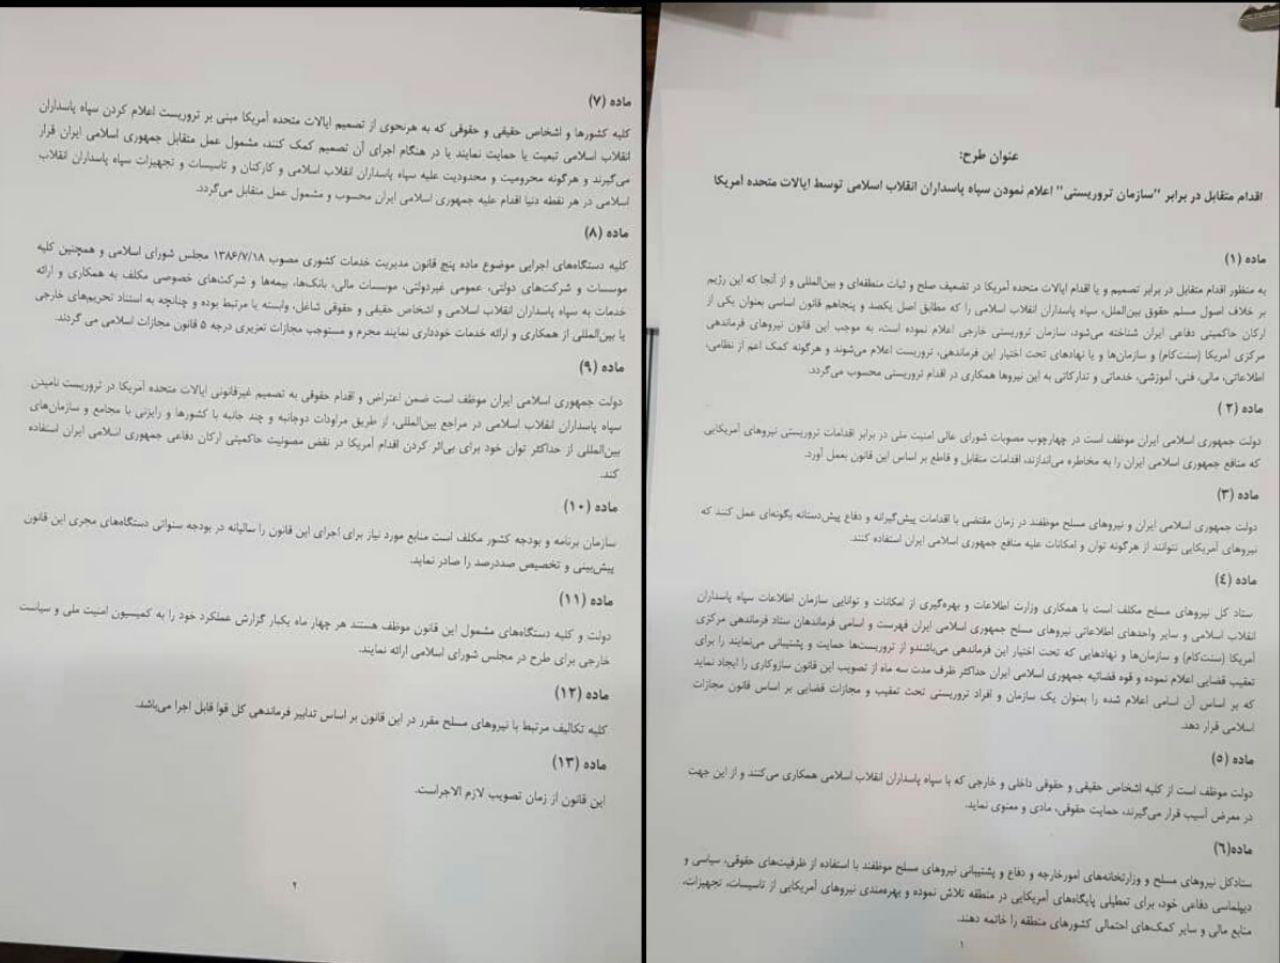 عنوان طرح:
اقدام متقابل در برابر "سازمان تروریستی" اعلام نمودن سپاه پاسداران انقلاب اسلامی توسط ایالات متحده آمریکا
ماده (۱)
به منظور اقدام متقابل در برابر تصمیم و یا اقدام ایالات متحده آمریکا در تضعیف صلح و ثبات منطقه‌ای و بین‌المللی و از آنجا که این رژیم
بر خلاف اصول مسلم حقوق بین‌الملل، سپاه پاسداران انقلاب اسلامی را که مطابق اصل یکصد و پنجاهم قانون اساسی بعنوان یکی از
ارکان حاکمیتی دفاعی ایران شناخته می‌شود، سازمان تروریستی خارجی اعلام نموده است، به موجب این قانون نیروهای فرماندهی
مرکزی آمریکا (سنت‌کام) و سازمان‌ها و یا نهادهای تحت اختیار این فرماندهی، تروریست اعلام می‌شوند و هرگونه کمک اعم از نظامی،
اطلاعاتی، مالی، فنی، آموزشی، خدماتی و تدارکاتی به این نیروها همکاری در اقدام تروریستی محسوب می‌گردد.
ماده (۲)
دولت جمهوری اسلامی ایران موظف است در چهارچوب مصوبات شورای عالی امنیت ملی در برابر اقدامات تروریستی نیروهای آمریکایی
که منافع جمهوری اسلامی ایران را به مخاطره می‌اندازند، اقدامات متقابل و قاطع بر اساس این قانون بعمل آورد.
ماده (۳)
دولت جمهوری اسلامی ایران و نیروهای مسلح موظفند در زمان مقتضی با اقدامات پیش‌گیرانه و دفاع پیش‌دستانه بگونه‌ای عمل کنند که
نیروهای آمریکایی نتوانند از هرگونه توان و امکانات علیه منافع جمهوری اسلامی ایران استفاده کنند.
ماده (٤)
ستاد کل نیروهای مسلح مکلف است با همکاری وزارت اطلاعات و بهره‌گیری از امکانات و توانایی سازمان اطلاعات سپاه پاسداران
انقلاب اسلامی و سایر واحدهای اطلاعاتی نیروهای مسلح جمهوری اسلامی ایران فهرست و اسامی فرماندهان ستاد فرماندهی مرکزی
آمریکا (سنت‌کام) و سازمان‌ها و نهادهایی که تحت اختیار این فرماندهی می‌باشندو از تروریست‌ها حمایت و پشتیبانی می‌نمایند را برای
تعقیب قضایی اعلام نموده و قوه قضائیه جمهوری اسلامی ایران حداکثر ظرف مدت سه ماه از تصویب این قانون سازوکاری را ایجاد نماید
که بر اساس آن اسامی اعلام شده را بعنوان یک سازمان و افراد تروریستی تحت تعقیب و مجازات قضایی بر اساس قانون مجازات
اسلامی قرار دهد.
ماده (٥)
دولت موظف است از کلیه اشخاص حقیقی و حقوقی داخلی و خارجی که با سپاه پاسداران انقلاب اسلامی همکاری می‌کنند و از این جهت
در معرض آسیب قرار می‌گیرند، حمایت حقوقی، مادی و معنوی نماید.
ماده(٦)
ستادکل نیروهای مسلح و وزارتخانه‌های امورخارجه و دفاع و پشتیبانی نیروهای مسلح موظفند با استفاده از ظرفیت‌های حقوقی، سیاسی و
دیپلماسی دفاعی خود، برای تعطیلی پایگاه‌های آمریکایی در منطقه تلاش نموده و بهره‌مندی نیروهای آمریکایی از تاسیسات، تجهیزات،
منابع مالی و سایر کمک‌های احتمالی کشورهای منطقه را خاتمه دهند.
۱
ماده (۷)
کلیه کشورها و اشخاص حقیقی و حقوقی که به هرنحوی از تصمیم ایالات متحده آمریکا مبنی بر تروریست اعلام کردن سپاه پاسداران
انقلاب اسلامی تبعیت یا حمایت نمایند یا در هنگام اجرای آن تصمیم کمک کنند، مشمول عمل متقابل جمهوری اسلامی ایران قرار
می‌گیرند و هرگونه محرومیت و محدودیت علیه سپاه پاسداران انقلاب اسلامی و کارکنان و تاسیسات و تجهیزات سپاه پاسداران انقلاب
اسلامی در هر نقطه دنیا اقدام علیه جمهوری اسلامی ایران محسوب و مشمول عمل متقابل می‌گردد.
ماده (۸)
کلیه دستگاه‌های اجرایی موضوع ماده پنج قانون مدیریت خدمات کشوری مصوب ۱۳۸۶/۷/۱۸ مجلس شورای اسلامی و همچنین کلیه
موسسات و شرکت‌های دولتی، عمومی غیردولتی، موسسات مالی، بانک‌ها، بیمه‌ها و شرکت‌های خصوصی مکلف به همکاری و ارائه
خدمات به سپاه پاسداران انقلاب اسلامی و اشخاص حقیقی و حقوقی شاغل، وابسته یا مرتبط بوده و چنانچه به استناد تحریم‌های خارجی
یا بین‌المللی از همکاری و ارائه خدمات خودداری نمایند مجرم و مستوجب مجازات تعزیری درجه ۵ قانون مجازات اسلامی می گردند.
ماده (۹)
دولت جمهوری اسلامی ایران موظف است ضمن اعتراض و اقدام حقوقی به تصمیم غیرقانونی ایالات متحده آمریکا در تروریست نامیدن
سپاه پاسداران انقلاب اسلامی در مراجع بین‌المللی، از طریق مراودات دوجانبه و چند جانبه با کشورها و رایزنی با مجامع و سازمان‌های
بین‌المللی از حداکثر توان خود برای بی‌اثر کردن اقدام آمریکا در نقض مصونیت حاکمیتی ارکان دفاعی جمهوری اسلامی ایران استفاده
کند.
ماده (۱۰)
سازمان برنامه و بودجه کشور مکلف است منابع مورد نیاز برای اجرای این قانون را سالیانه در بودجه سنواتی دستگاه‌های مجری این قانون
پیش‌بینی و تخصیص صددرصد را صادر نماید.
ماده (۱۱)
دولت و کلیه دستگاه‌های مشمول این قانون موظف هستند هر چهار ماه یکبار گزارش عملکرد خود را به کمیسیون امنیت ملی و سیاست
خارجی برای طرح در مجلس شورای اسلامی ارائه نمایند.
ماده (۱۲)
کلیه تکالیف مرتبط با نیروهای مسلح مقرر در این قانون بر اساس تدابیر فرماندهی کل قوا قابل اجرا می‌باشد.
ماده (۱۳)
این قانون از زمان تصویب لازم الاجراست.
۲